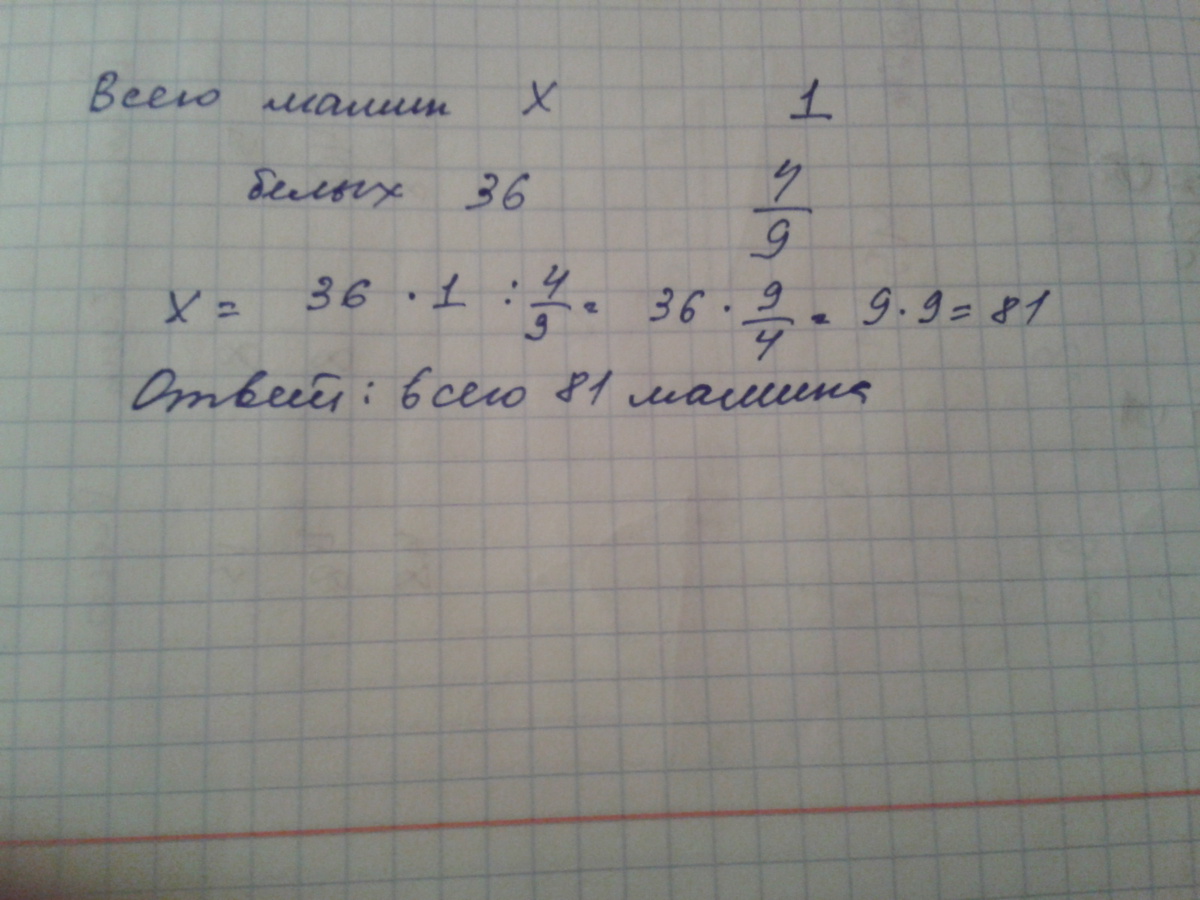 Всего машин х 1
белых 36 4/9
х = 36 · 1 : 4/9 = 36 · 9/4 = 9 · 9 = 81
Ответ: всего 81 машина